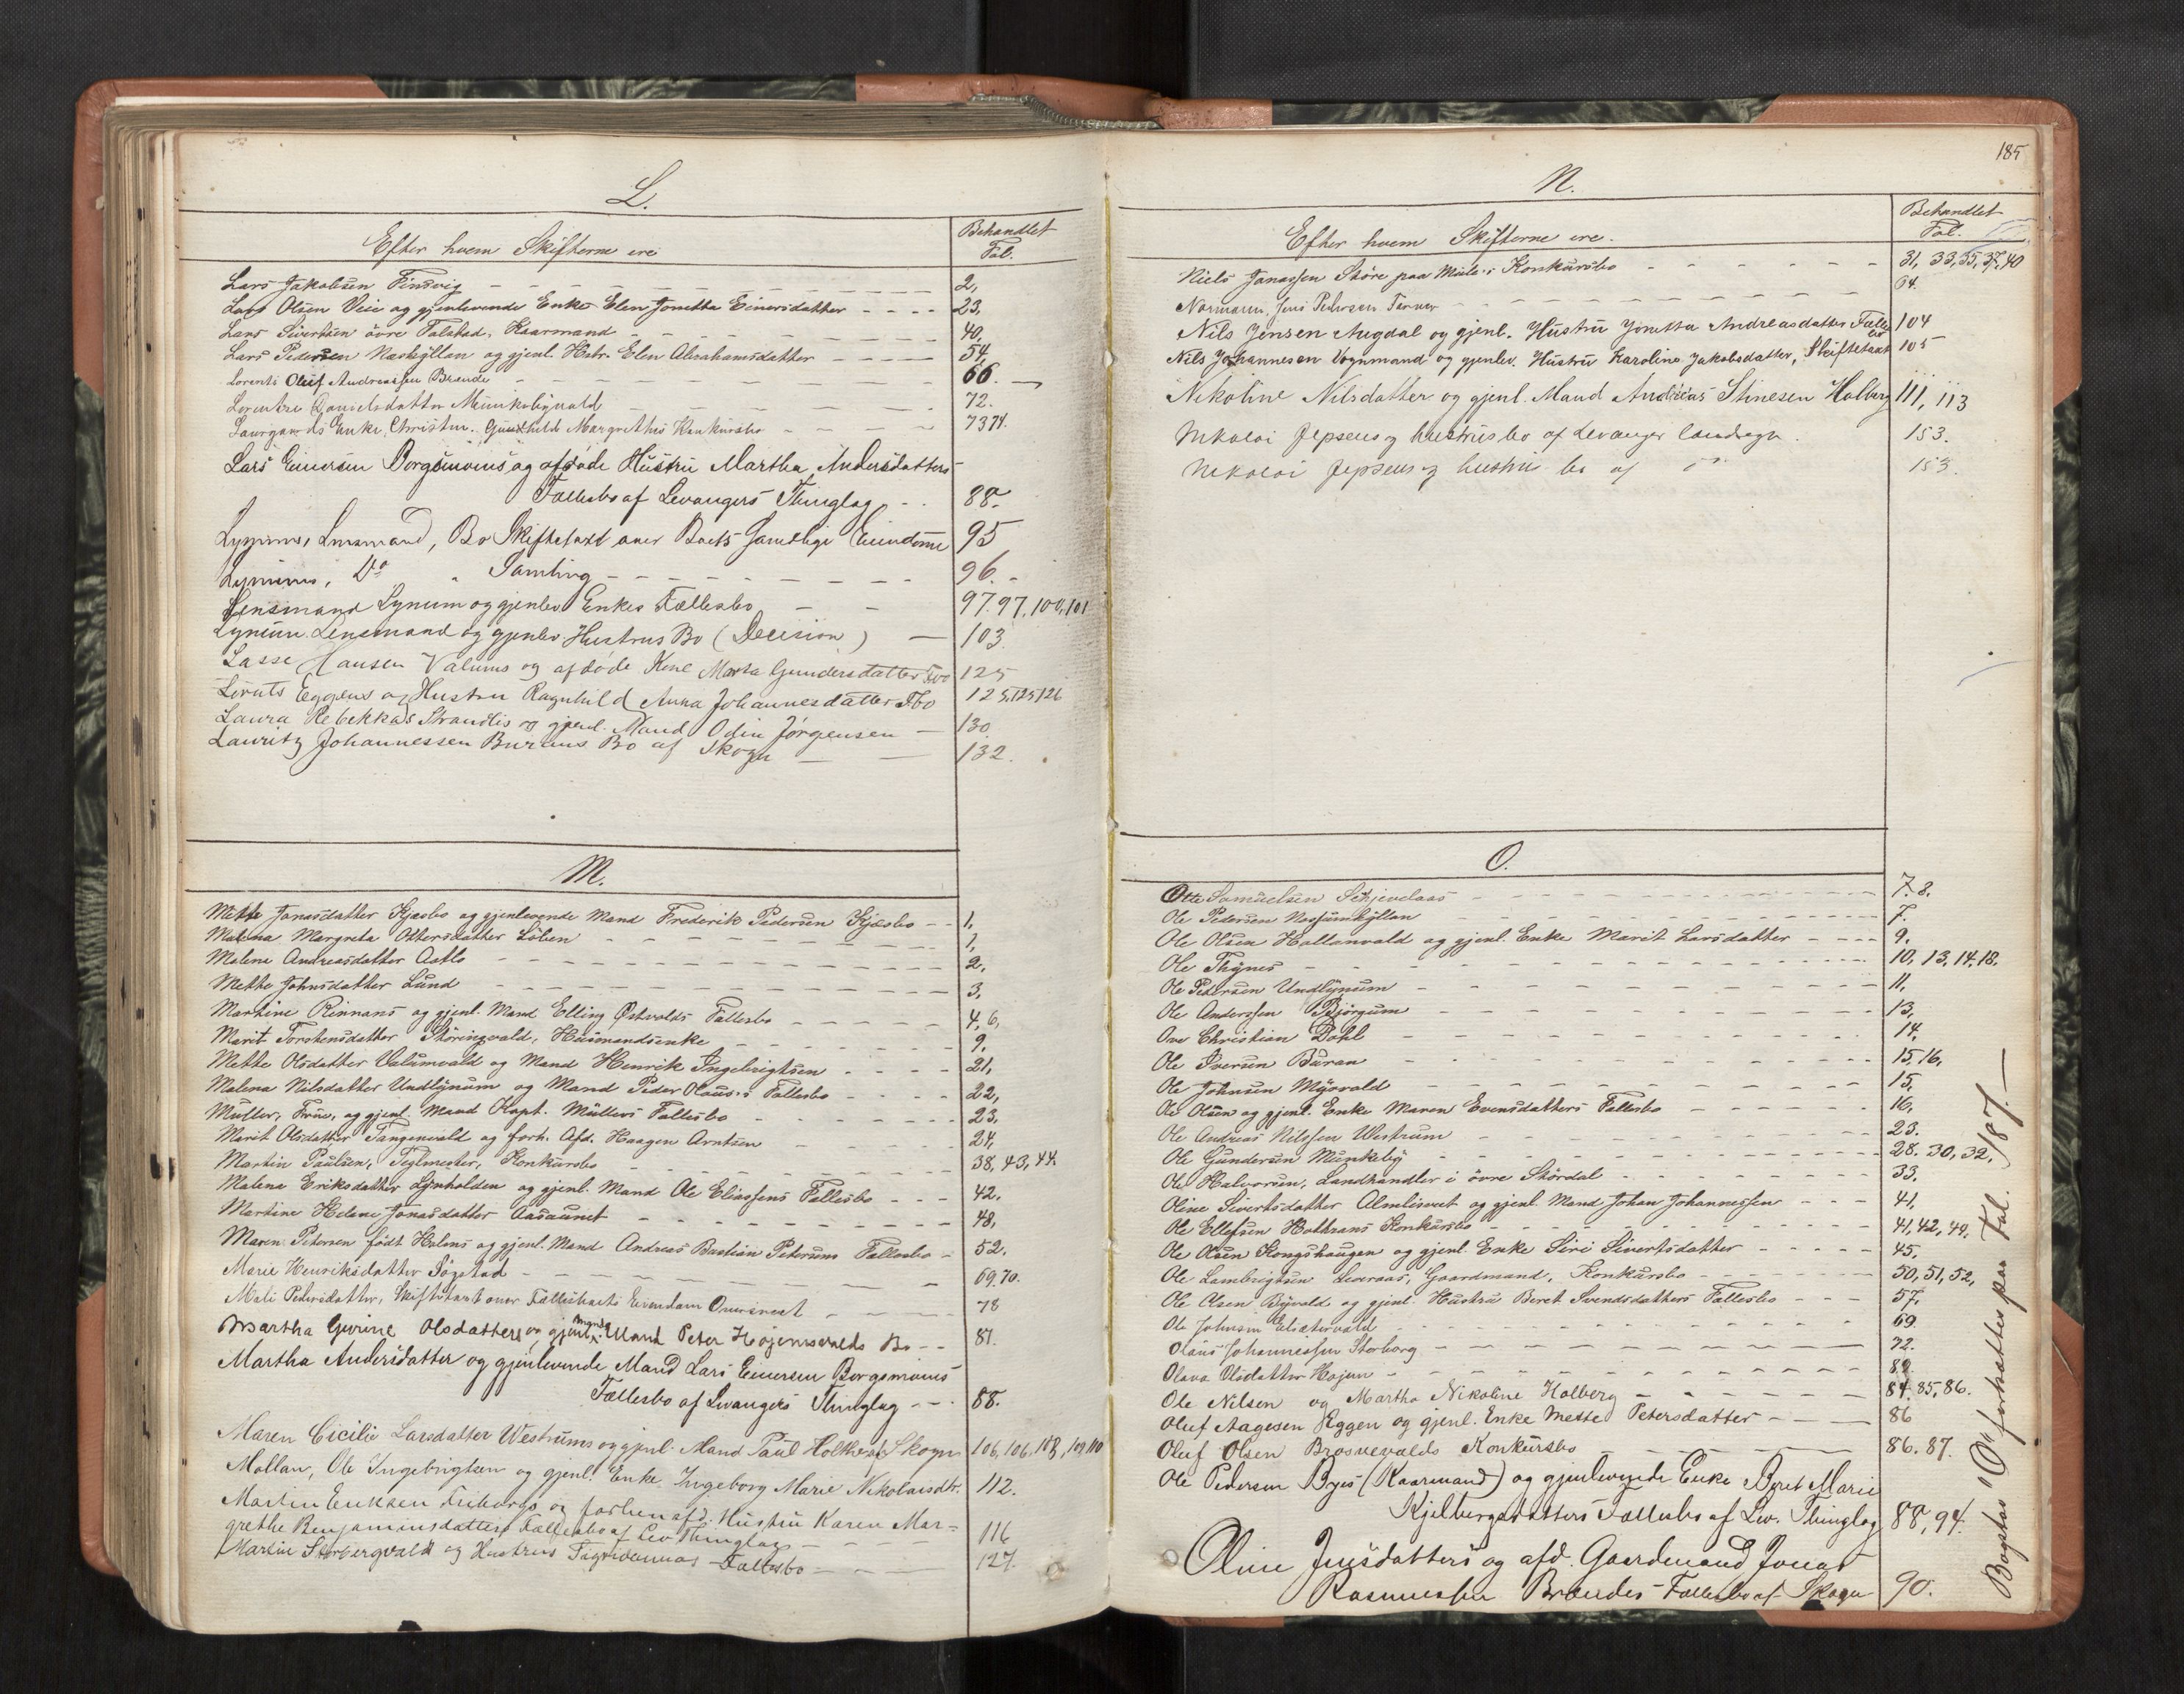 L.
Efter hvem Skifterne ere
Behandlet
Fol.
Lars Jakobsen Finsvig 2,
Lars Olsen Veie og gjenlevende Enke Elen Jonetta Einersdatter 23,
Lars Sivertsen övre Falstad, Kaarmand 40,
Lars Pedersen Naskyllan og gjenl. Hstr. Elen Abrahamsdatter 54,
Lorents Oluf Andreassen Brende 66.
Lorentse Danielsdatter Munkebyvald 72.
Enke, Christine Gunhild Margrethes Konkursbo 73 74.
Lars Einersen Borgsmoins og afdøde Hustru Martha Andersdatters
Fællesbo af Levangers Thinglag 88.
Lynum, Lensmand, Bo Skiftetaxt over Boets samtlige Eiendomme 95
Lynums, Do " Samling 96.
Lensmand Lynum og gjenlev Enkes Fællesbo 97. 97, 100, 101
Lynum Lensmand og gjenlev Hustrus Bo (Decision) 103
Lasse Hansen Valums og afdøde Kone Marta Gundersdatter Fbo 125
Eggens og Hustru Ragnhild Anna Johannesdatter Fbo 125, 125, 126
Laura Rebekkas Strandlis og gjenl. Mand Odin Jørgensen 130
Lauritz Johannessen Burans Bo af Skogn 132.
M.
Mette Jonasdatter Kjæsbo og gjenlevende Mand Frederik Pedersen Kjæsbo 1,
Malena Margreta Ottersdatter Löben 1,
Malene Andreasdatter Aatlo 2,
Mette Johnsdatter Lund 3,
Martine Rinnans og gjenl. Mand Elling Østvolds Fællesbo 4, 6,
Marit Torstensdatter Støringvald, Husmandsenke 9,
Mette Olsdatter Valumvald og Mand Henrik Ingebrigtsen 21,
Malena Nilsdatter Undlynum og Mand Peder Olaus's Fællesbo 22,
Müller, Frue, og gjenl. Mand Kapt. Müllers Fællesbo 23,
Marit Olsdatter Tangenvald og forh. Afd. Haagen Arntsen 24,
Martin Paulsen, Teglmester, Konkursbo 38, 43, 44.
Malena Eriksdatter Lynholden og gjenl. Mand Ole Eliassens Fællesbo 42.
Martine Helene Jonasdatter Aasaunet 48,
Maren Petersen født Holms og gjenl. Mand Andreas Bastian Petersens Fællesbo 52.
Marie Henriksdatter Søgstad 69, 70.
Mali Pedersdatter, Skiftetaxt over Fællesboets Eiendom 78
Martha Gurine Olsdatters og gjenl. Mand Peter Højemsvalds Bo 81.
Martha Andersdatter og gjenlevende Mand Lars Einersen Borgsmoins
Fællesbo af Levangers Thinglag 88.
Maren Cicilie Larsdatter Westrums og gjenl. Mand Paul Holthe af Skogn 106, 106, 108, 109, 110
Mollan, Ole Ingebrigtsen og gjenl. Enke Ingeborg Marie Nikolaisdtr. 112.
Martin Eriksen Friborgs og forhen afd. Hustru Karen Mar=
grethe Benjaminsdatters Fællesbo af Lev Thinglag 116
Martin Storbergvald og Hustrus Fællesbo 127.
185
N.
Efter hvem Skifterne ere.
Behandlet
Fol.
Niels Jonassen Störe paa Mule's Konkursbo 31, 33, 35, 37, 40
Normann, Jens Pedersen Ferner 64.
Nils Jensen Augdal og gjenl. Hustru Jonetta Andreasdatter Fælle 104
Nils Johannesen Vognmand og gjenlev. Hustru Karoline Jakobsdatter, Skiftetaxt 105
Nikoline Nilsdatter og gjenl. Mand Andreas Stinesen Holberg 111, 113
Nikolai Jepsens og hustrus bo af Levanger landsogn. 153.
Nikolai Jepsens og hustrus bo af do 153.
O.
Otte Samuelsen Schjevelaas 7. 8.
Ole Pedersen Nossumhyllan 7.
Ole Olsen Hallanvald og gjenl. Enke Marit Larsdatter 9.
Ole Thynes 10, 13, 14, 18.
Ole Pedersen Undlynum 11,
Ole Anderssen Bjørgum 13,
Ove Christian Dahl 14,
Ole Iversen Buran 15, 16,
Ole Johnsen Myrvald 15,
Ole Olsen og gjenl. Enke Maren Evensdatters Fællesbo 16,
Ole Andreas Nilssen Westrum 23.
Ole Gundersen Munkeby 28. 30, 32.
Ole Halvorsen, Landhandler i övre Stördal 33.
Oline Sivertsdatter Almlisvet og gjenl. Mand Johan Johannessen 41,
Ole Ellefsen Holtrans Konkursbo 41, 42, 49,
Ole Olsen Kongshaugen og gjenl. Enke Siri Sivertsdatter 45,
Ole Lambrigtsen Leeraas, Gaardmand, Konkursbo 50, 51, 52,
Ole Olsen Byvald og gjenl. Hustru Beret Svendsdatters Fællesbo 57.
Ole Johnsen 69
Olaus Johannessen Storborg 72.
Olava Olsdatter Hojem 82
Ole Nilsen og Martha Nikoline Holberg 84. 85, 86.
Oluf Aagesen Eggen og gjenl. Enke Mette Petersdatter 86
Oluf Olsen Brosvevalds Konkursbo 86. 87.
Ole Pedersen Byes (Kaarmand) og gjenlevende Enke Beret Marie
Kjelbergsdatters Fællesbo af Lev. Thinglag 88, 94.
Oline Jensdatters og afd. Gaardmand Jonas
Rasmussen Brendes Fællesbo af Skogn 90.
Bogstav "O" forsættes paa Fol. 187.